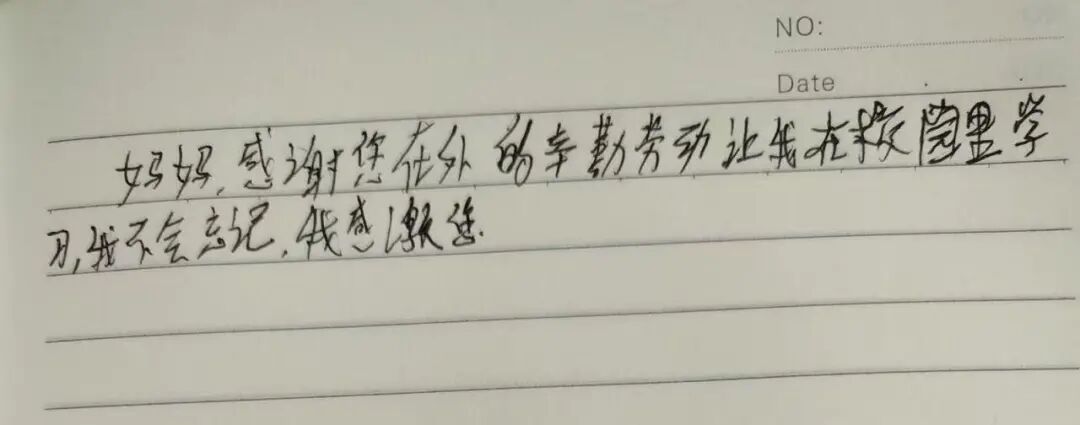 NO:
Date
妈妈,感谢您在外的辛勤劳动让我在校园里学
习,我不会忘记,我感激您.